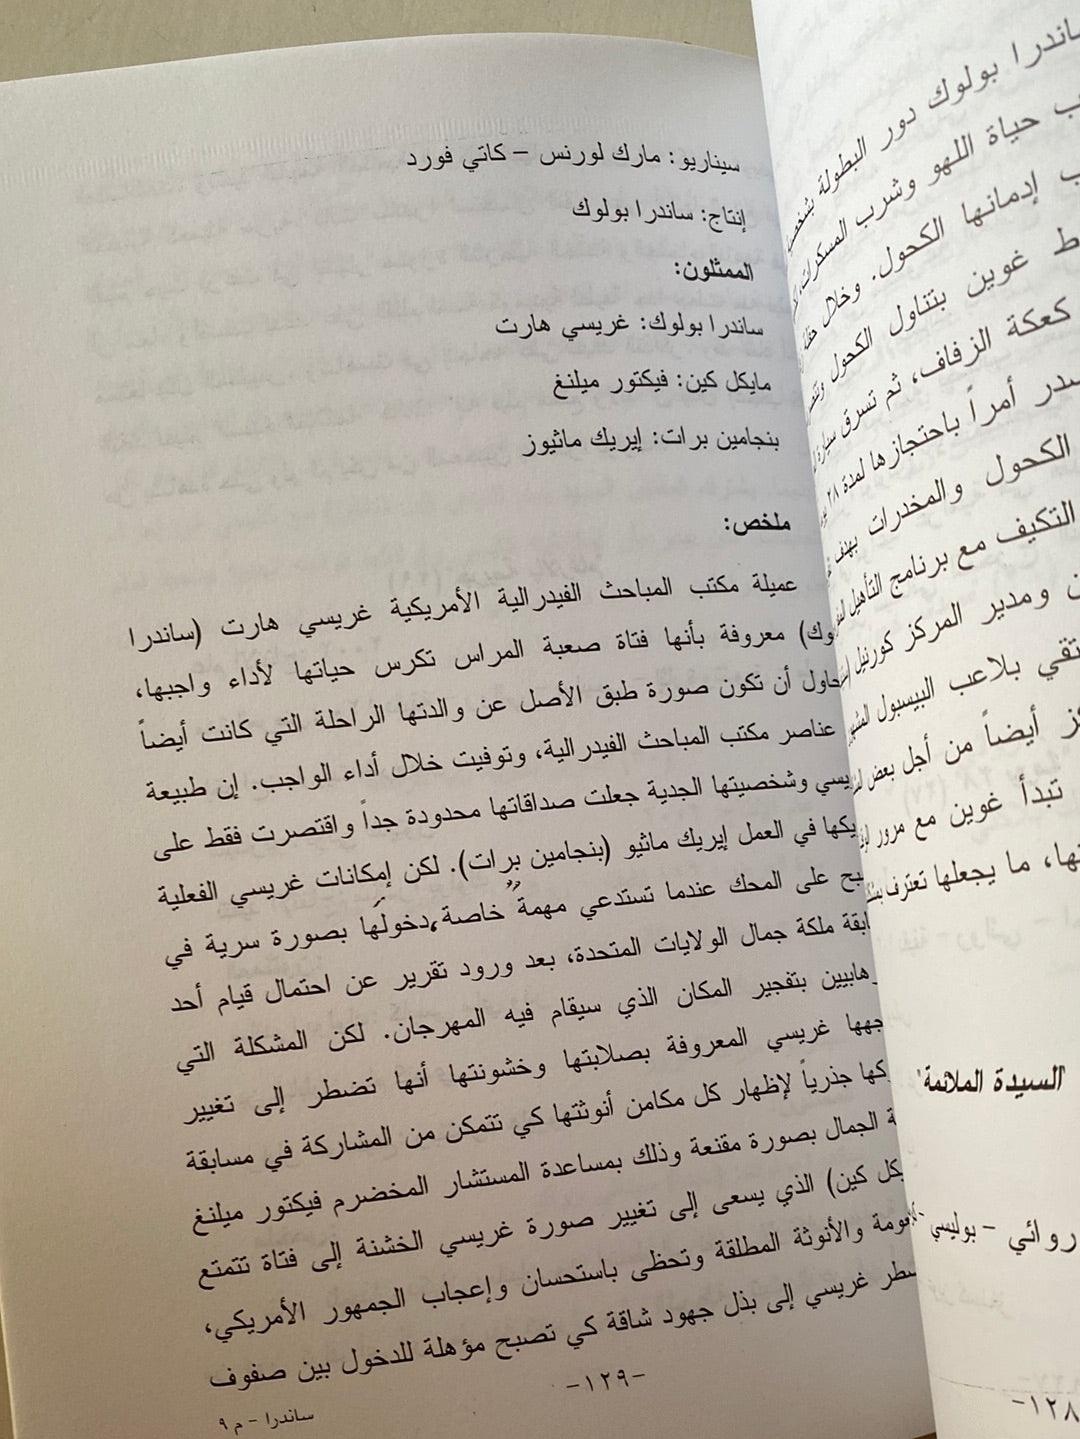 ساندرا بولوك دور البطولة بشخصية
حياة اللهو وشرب المسكرات،
إدمانها الكحول. وخلال حفل
غوين بتناول الكحول
كعكة الزفاف، ثم تسرق سيارة
أمراً باحتجازها لمدة ٢٨
الكحول والمخدرات بهدف
التكيف مع برنامج التأهيل
ومدير المركز كورنيل
بلاعب البيسبول
أيضاً من أجل بعض
تبدأ غوين مع مرور
ما يجعلها تعترف
"السيدة الملائمة"
روائي - بوليسي -
-١٢٨
سيناريو: مارك لورنس - كاتي فورد
إنتاج: ساندرا بولوك
الممثلون:
ساندرا بولوك: غريسي هارت
مايكل كين: فيكتور ميلنغ
بنجامين برات: إيريك ماثيوز
ملخص:
عميلة مكتب المباحث الفيدرالية الأمريكية غريسي هارت (ساندرا
وك) معروفة بأنها فتاة صعبة المراس تكرس حياتها لأداء واجبها،
حاول أن تكون صورة طبق الأصل عن والدتها الراحلة التي كانت أيضاً
عناصر مكتب المباحث الفيدرالية، وتوفيت خلال أداء الواجب. إن طبيعة
يسي وشخصيتها الجدية جعلت صداقاتها محدودة جداً واقتصرت فقط على
يكها في العمل إيريك ماثيو (بنجامين برات). لكن إمكانات غريسي الفعلية
بح على المحك عندما تستدعي مهمةٌ خاصة، دخولَها بصورة سرية في
ابقة ملكة جمال الولايات المتحدة، بعد ورود تقرير عن احتمال قيام أحد
هابيين بتفجير المكان الذي سيقام فيه المهرجان. لكن المشكلة التي
جهها غريسي المعروفة بصلابتها وخشونتها أنها تضطر إلى تغيير
كها جذرياً لإظهار كل مكامن أنوثتها كي تتمكن من المشاركة في مسابقة
ة الجمال بصورة مقنعة وذلك بمساعدة المستشار المخضرم فيكتور ميلنغ
يكل كين) الذي يسعى إلى تغيير صورة غريسي الخشنة إلى فتاة تتمتع
ومة والأنوثة المطلقة وتحظى باستحسان وإعجاب الجمهور الأمريكي،
سطر غريسي إلى بذل جهود شاقة كي تصبح مؤهلة للدخول بين صفوف
-١٢٩-
ساندرا - م ٩